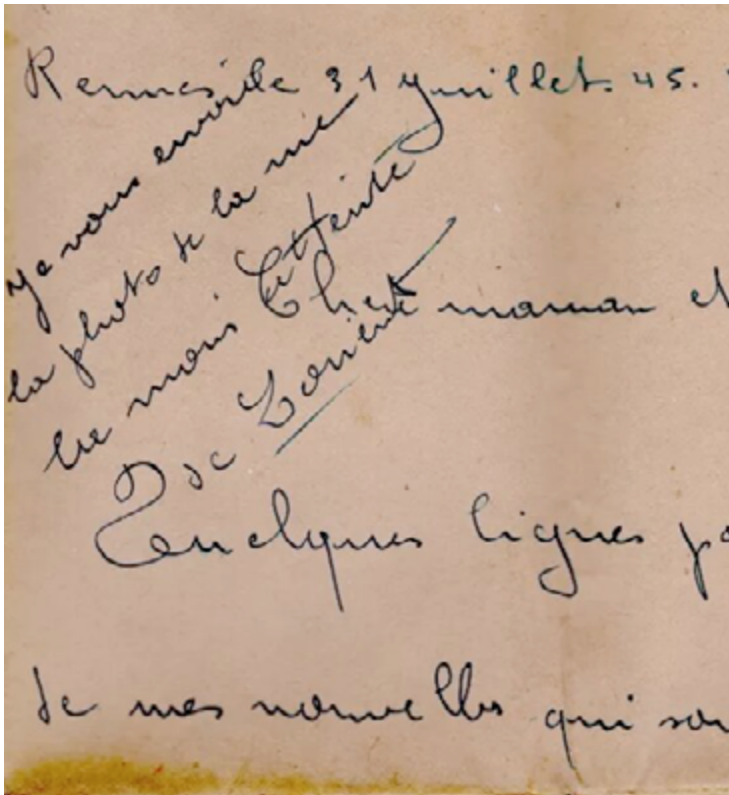 Rennes le 31 Juillet. 45.
Je vous envoie
la photo de la rue
le moins atteinte
de Lorient
Cher maman et
Quelques lignes
de mes nouvelles qui